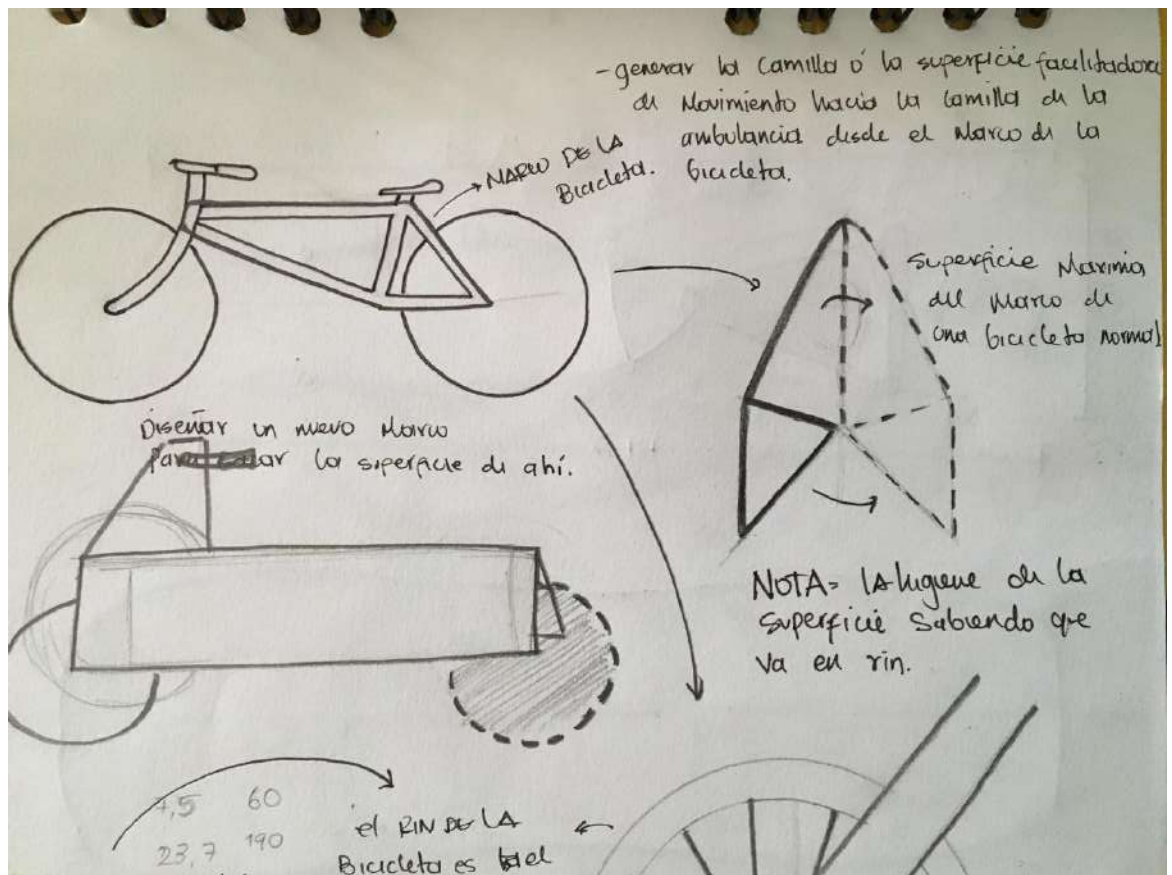 -generar la Camilla ó la superficie facilitadora
de Movimiento hacia la Camilla de la
ambulancia desde el Marco de la
bicicleta.
MARCO DE LA
Bicicleta.
superficie Maxima
del Marco de
una bicicleta normal
Diseñar un nuevo Marco
para la superficie de ahí.
NOTA= LA higiene de la
superficie Sabiendo que
va en rin.
7,5 60
23,7 190
el RIN DE LA
Bicicleta es el